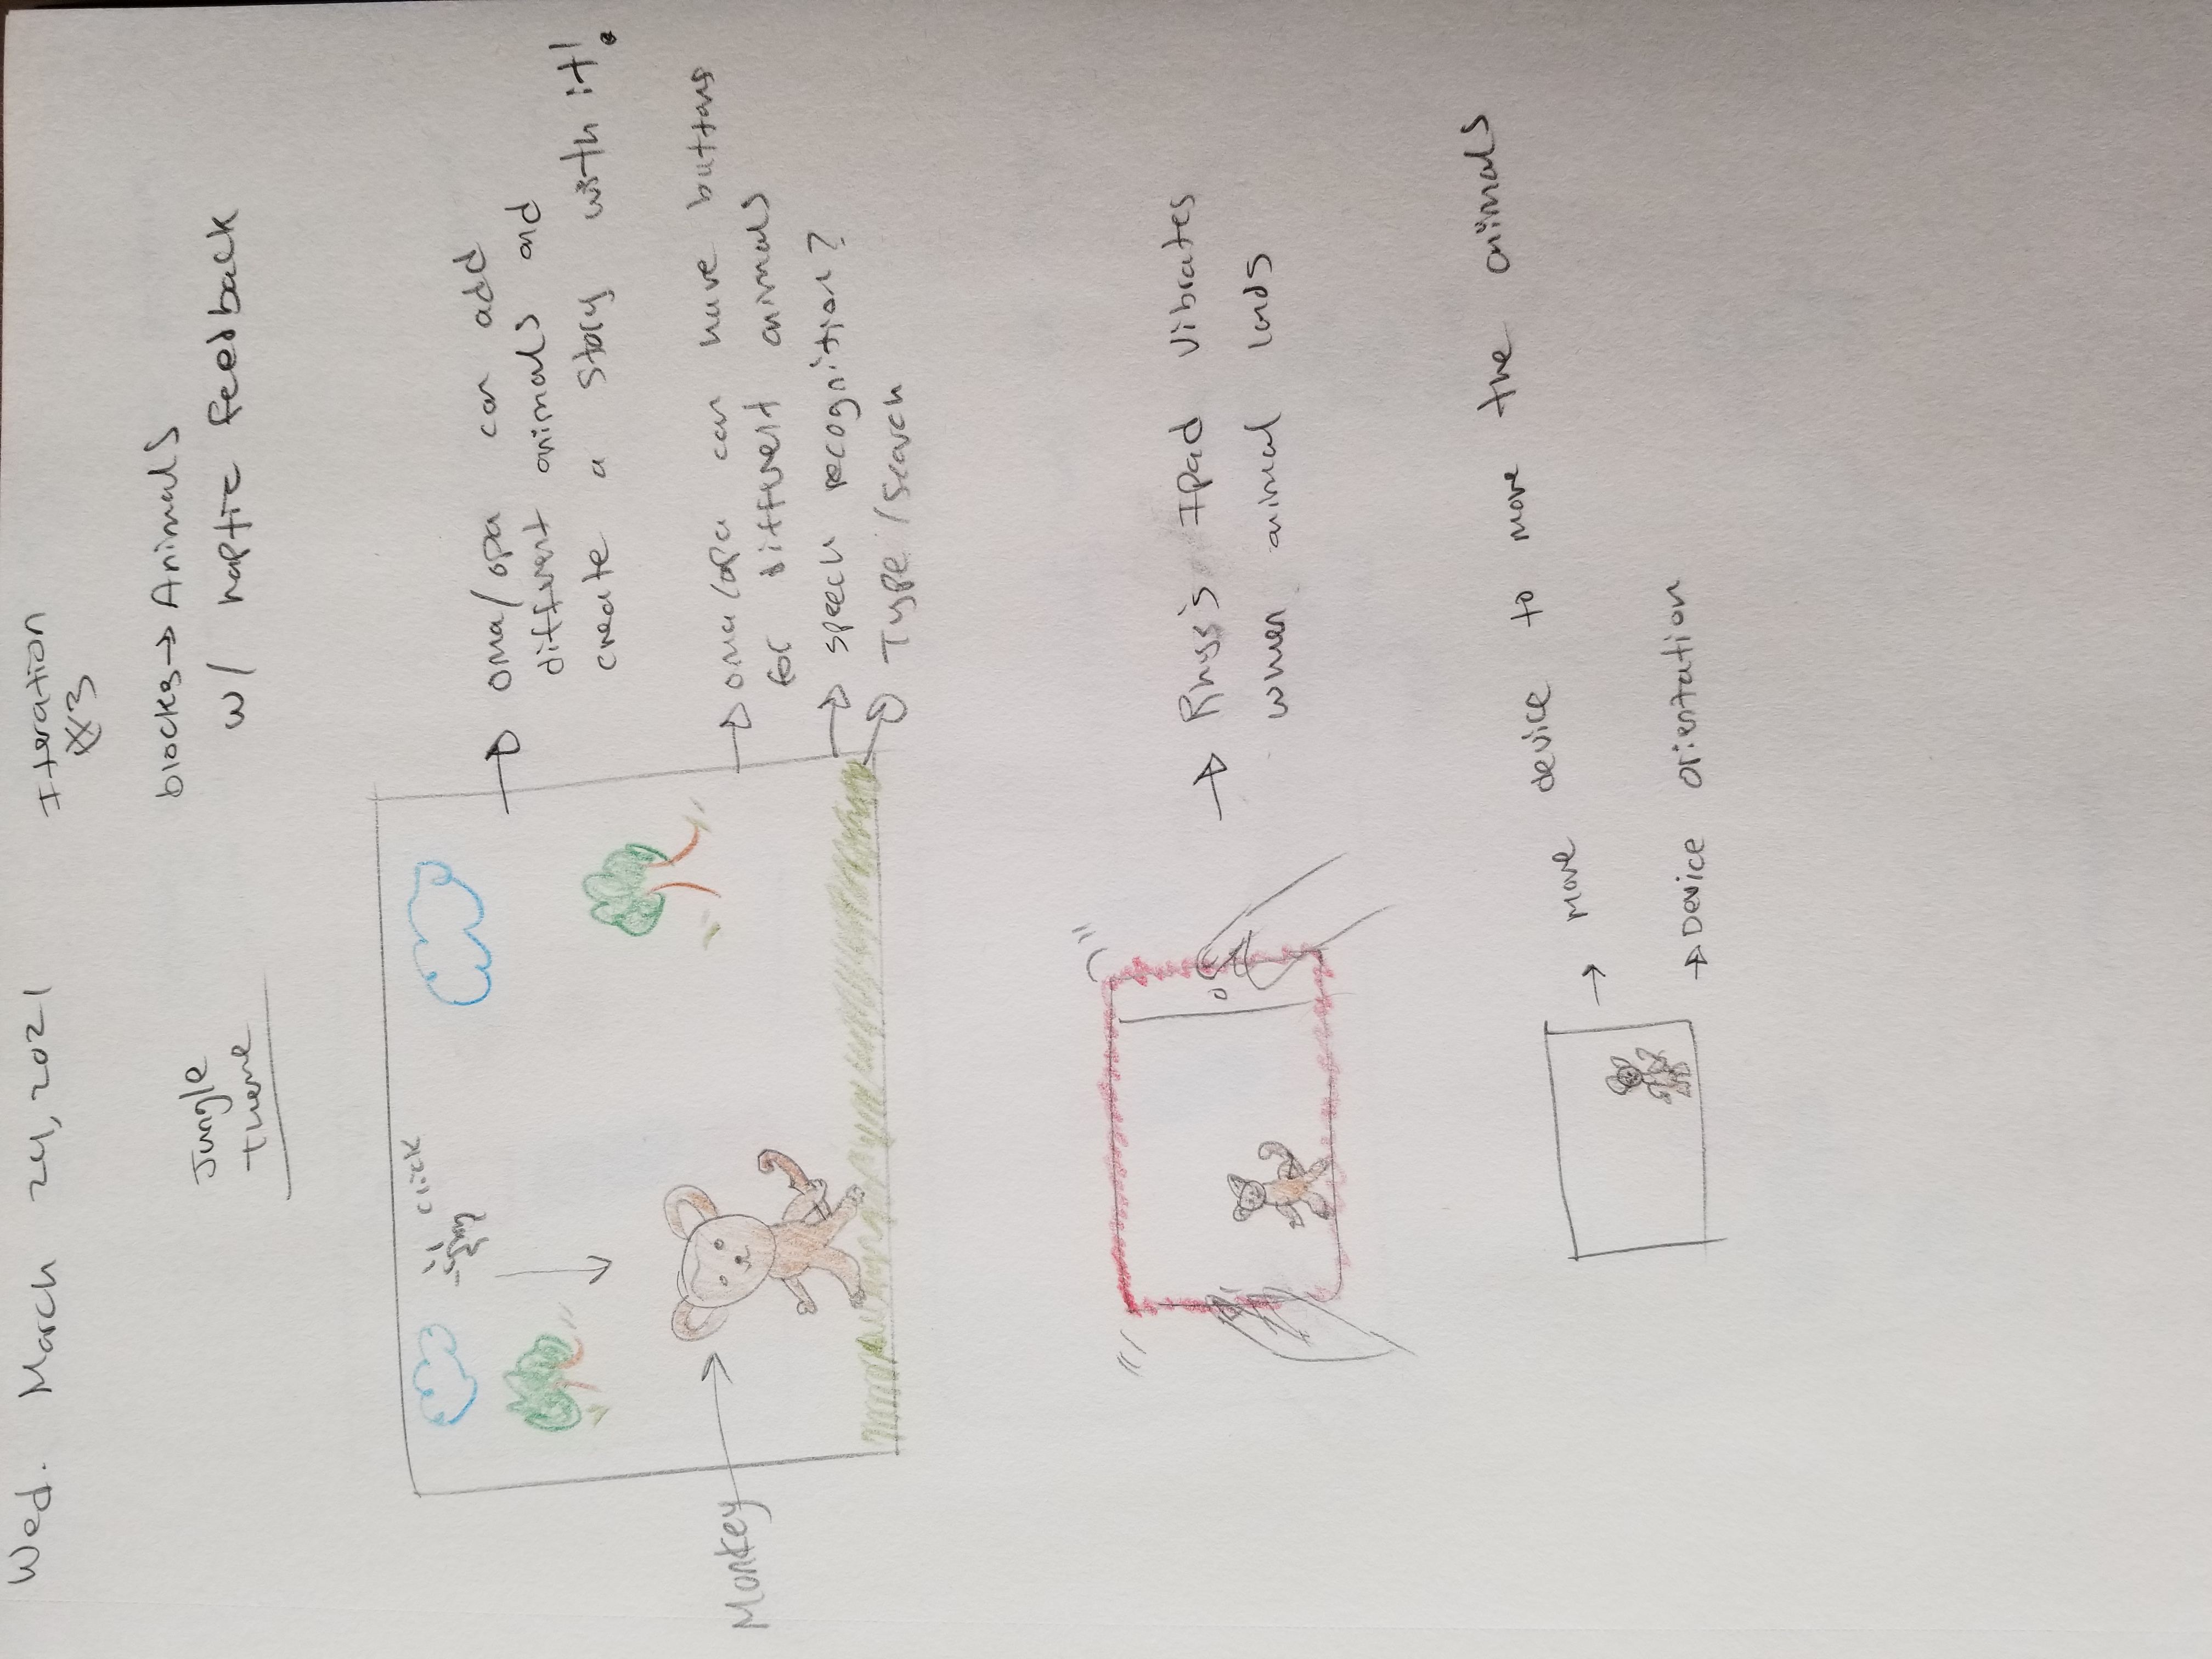 Wed. March 24, 2021
Iteration
#3
Jungle
theme
blocks → Animals
w/ haptic feedback
click
Monkey
→ oma/opa can add
different animals and
create a story with it!
→ oma/opa can have buttons
for different animals
→ speech recognition?
→ Type/search
→ Rhys's IPad vibrates
when animal lands
→ Move device to move the animals
→ Device orientation